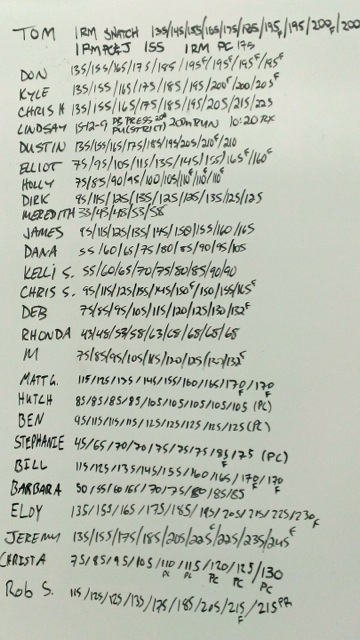 TOM 1RM SNATCH 135/145/155/165/175/185/195F/195/200F/200F
1RM PC&J 155 1RM PC 175
DON 135/155/165/175/185/195F/195F/195F/195F
KYLE 135/155/165/175/185/195/200F/200/205F
CHRIS H 135/155/165/175/185/195/205/215/225
LINDSAY 15-12-9 DB PRESS PU(STRICT) 200m RUN 10:20 RX
DUSTIN 135/155/165/175/185/195/205/210F/210
ELLIOT 75/95/105/115/135/145/155/165F/160F
HOLLY 75/85/90/95/100/105/110F/110F/110F
DIRK 95/115/125/135/125/125/135/125/125
MEREDITH 33/43/48/53/58
JAMES 95/115/125/135/145/150/155/160/165
DANA 55/60/65/75/80/85/90/95/105
KELLI S. 55/60/65/70/75/80/85/90/90
CHRIS S. 95/115/125/135/145/150F/150/155/165F
DEB 75/85/95/105/115/120/125/130/132F
RHONDA 43/48/53/58/63/68/68/68/68
75/85/95/105/115/120/125/132F
MATT G. 115/125/135/145/155/160/165/170F/170F
HUTCH 85/85/85/85/105/105/105/105/105 (PC)
BEN 95/115/115/115/125/125/125/125/125 (PC)
STEPHANIE 45/65/70/70/75/75/75/85F/75 (PC)
BILL 115/125/135/145/155/160/165/170F/170F
BARBARA 50/55/60/65/70/75/80/85/85
ELDY 135/155/165/175/185/195/205/215/225/230F
JEREMY 135/155/175/185/205/225F/225/235/245F
CHRISTA 75/85/95/105/110PC/115PC/120PC/125PC/130PC
Rob S. 115/125/125/135/175/185/205/215F/215PR